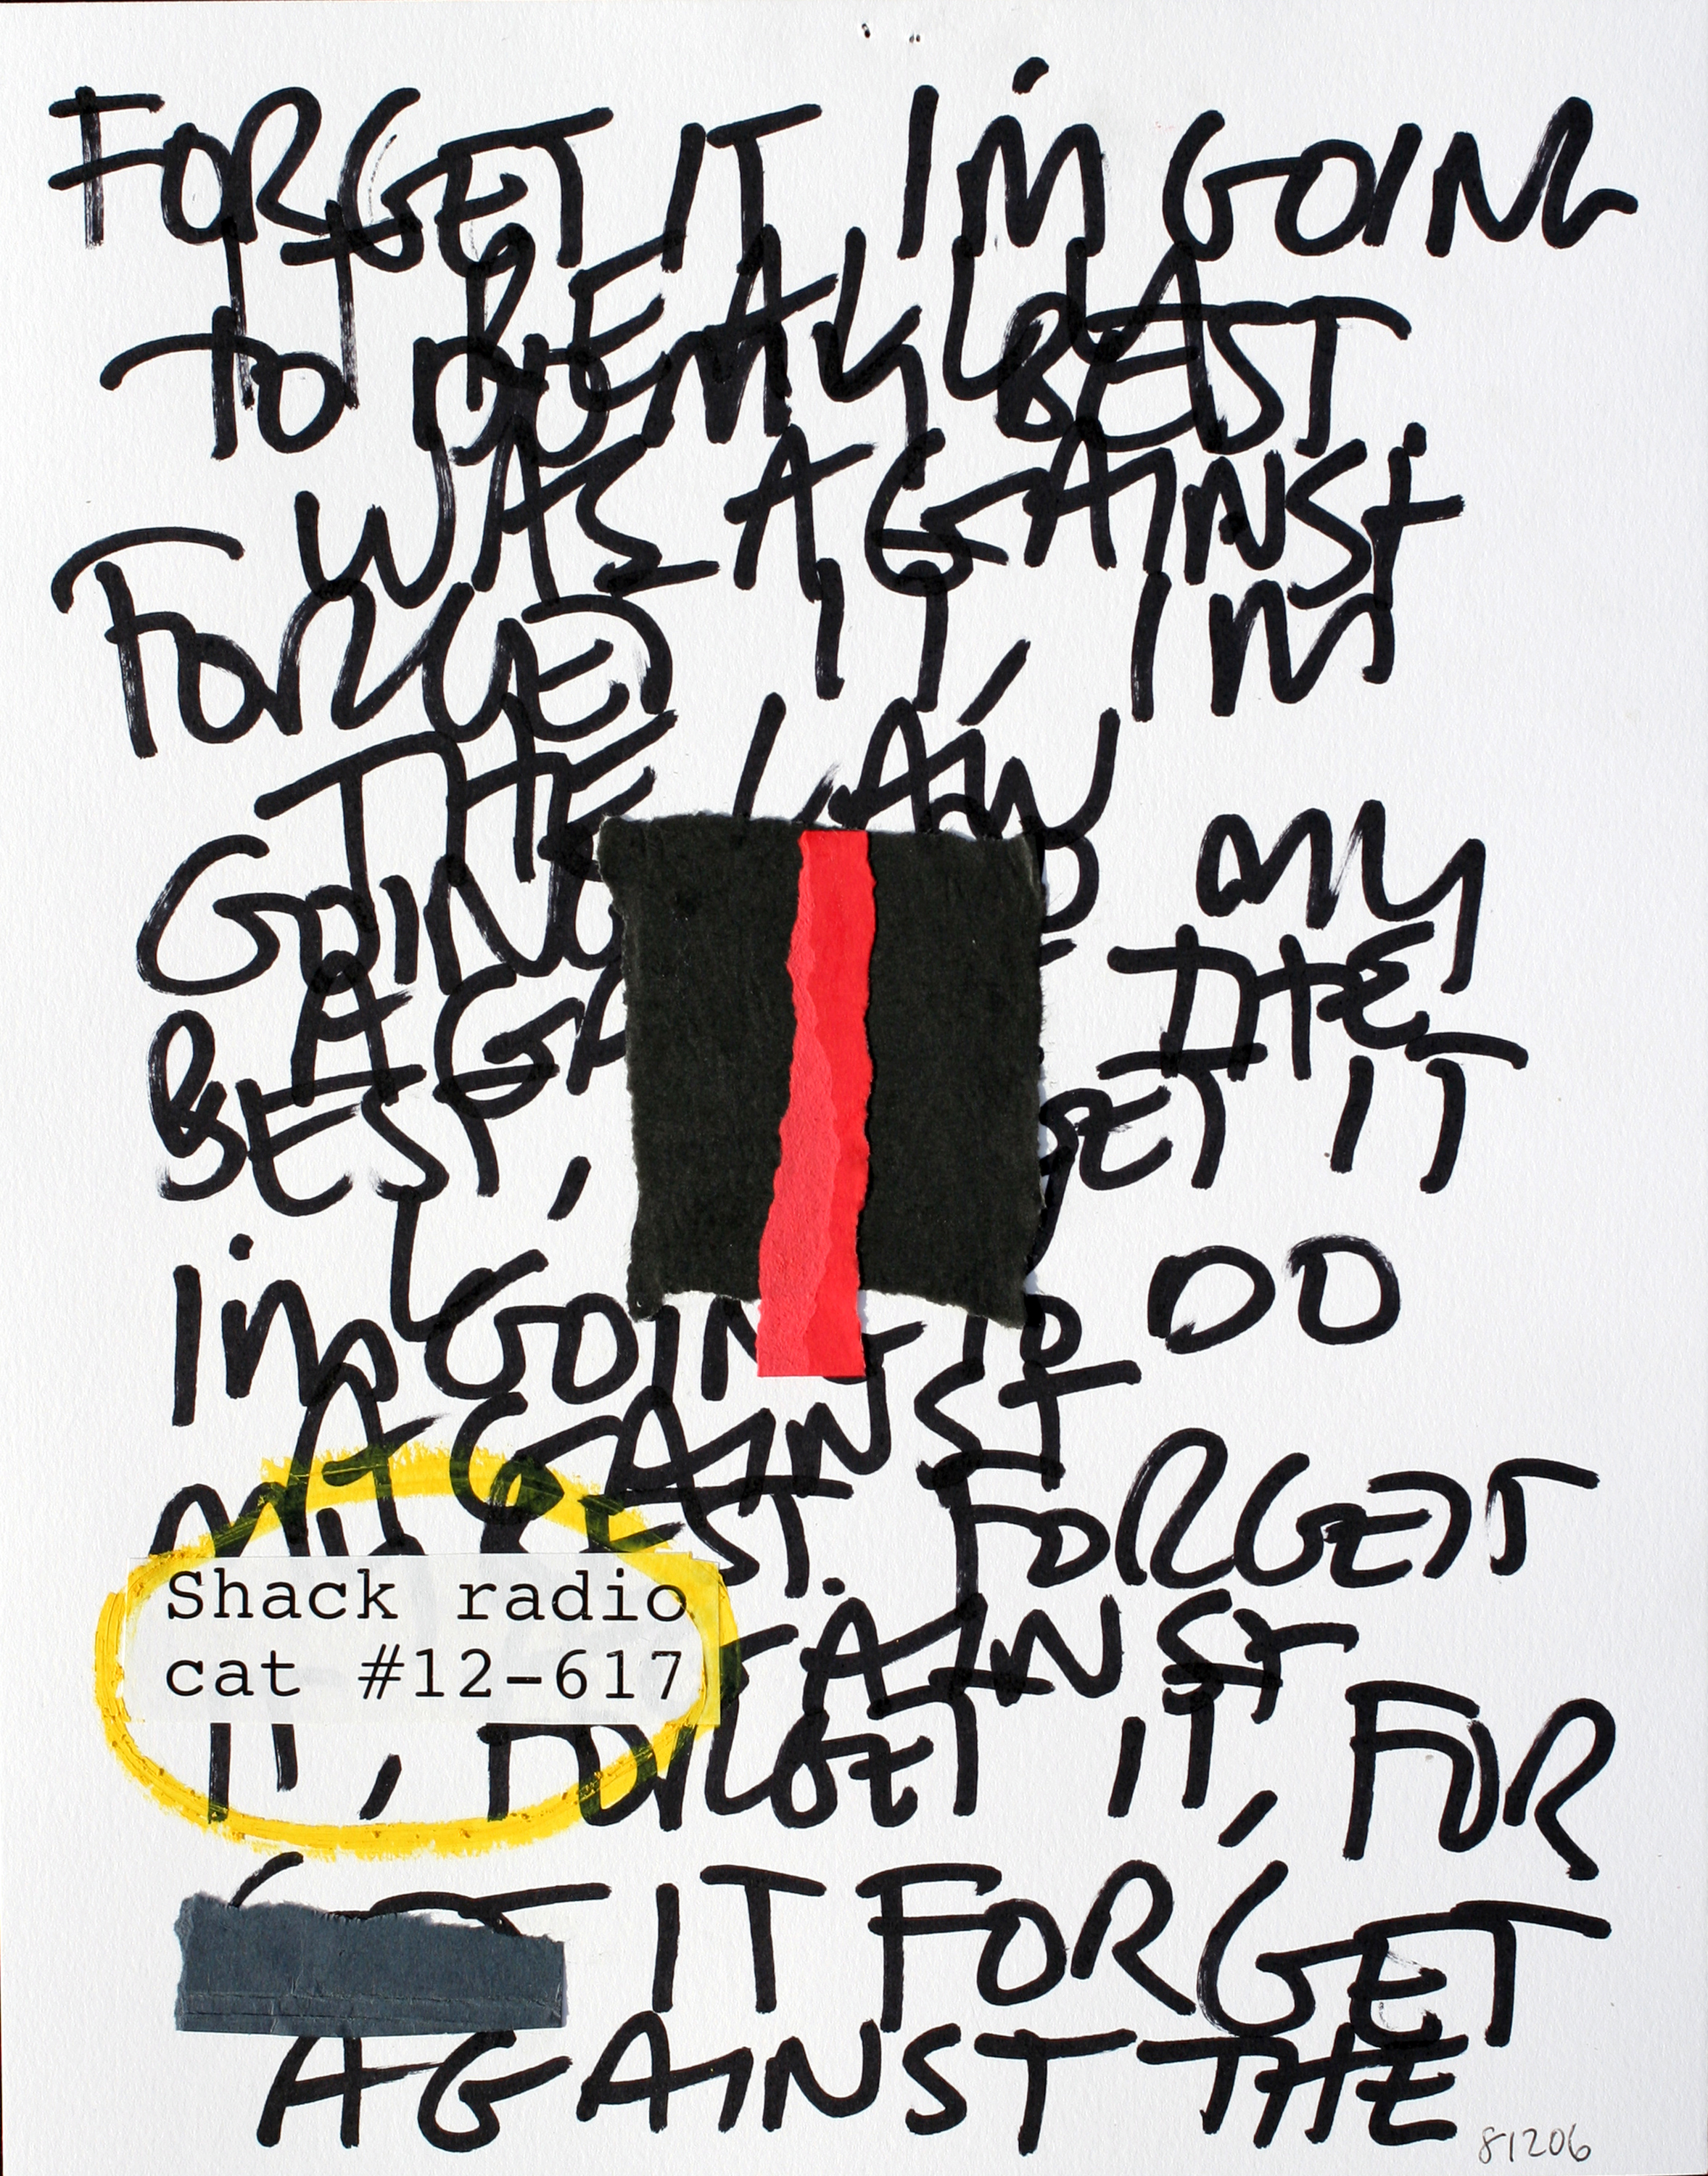 FORGET IT I'M GOING
IT REALLY
TO DO MY BEST
WAS AGAINST
FORGET IT, I'M
THE LAW
GOING MY
THE
BEST, GET IT
I'M GOING TO DO
AGAINST
MY BEST. FORGET
Shack radio
cat #12-617
IT, FORGET IT, FOR
GET IT FORGET
AGAINST THE
81206